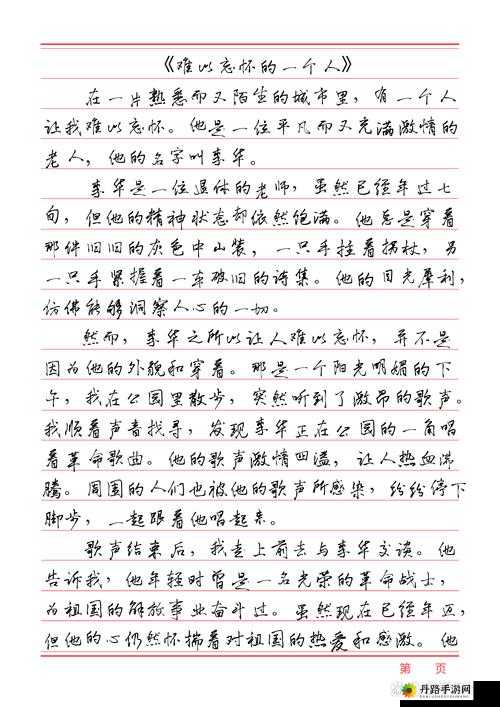 《难以忘怀的一个人》
在一片熟悉而又陌生的城市里，有一个人
让我难以忘怀。他是一位平凡而又充满激情的
老人，他的名字叫李华。
李华是一位退休的老师，虽然已经年过七
旬，但他的精神状态却依然饱满。他总是穿着
那件旧旧的灰色中山装，一只手拄着拐杖，另
一只手紧握着一本破旧的诗集。他的目光犀利，
仿佛能够洞察人心的一切。
然而，李华之所以让人难以忘怀，并不是
因为他的外貌和穿着。那是一个阳光明媚的下
午，我在公园里散步，突然听到了激昂的歌声。
我顺着声音找寻，发现李华正在公园的一角唱
着革命歌曲。他的歌声激情四溢，让人热血沸
腾。周围的人们也被他的歌声所感染，纷纷停下
脚步，一起跟着他唱起来。
歌声结束后，我走上前去与李华交谈。他
告诉我，他年轻时曾是一名光荣的革命战士，
为祖国的解放事业奋斗过。虽然现在已经年迈，
但他的心仍然怀揣着对祖国的热爱和感激。他
第 页
丹路手游网